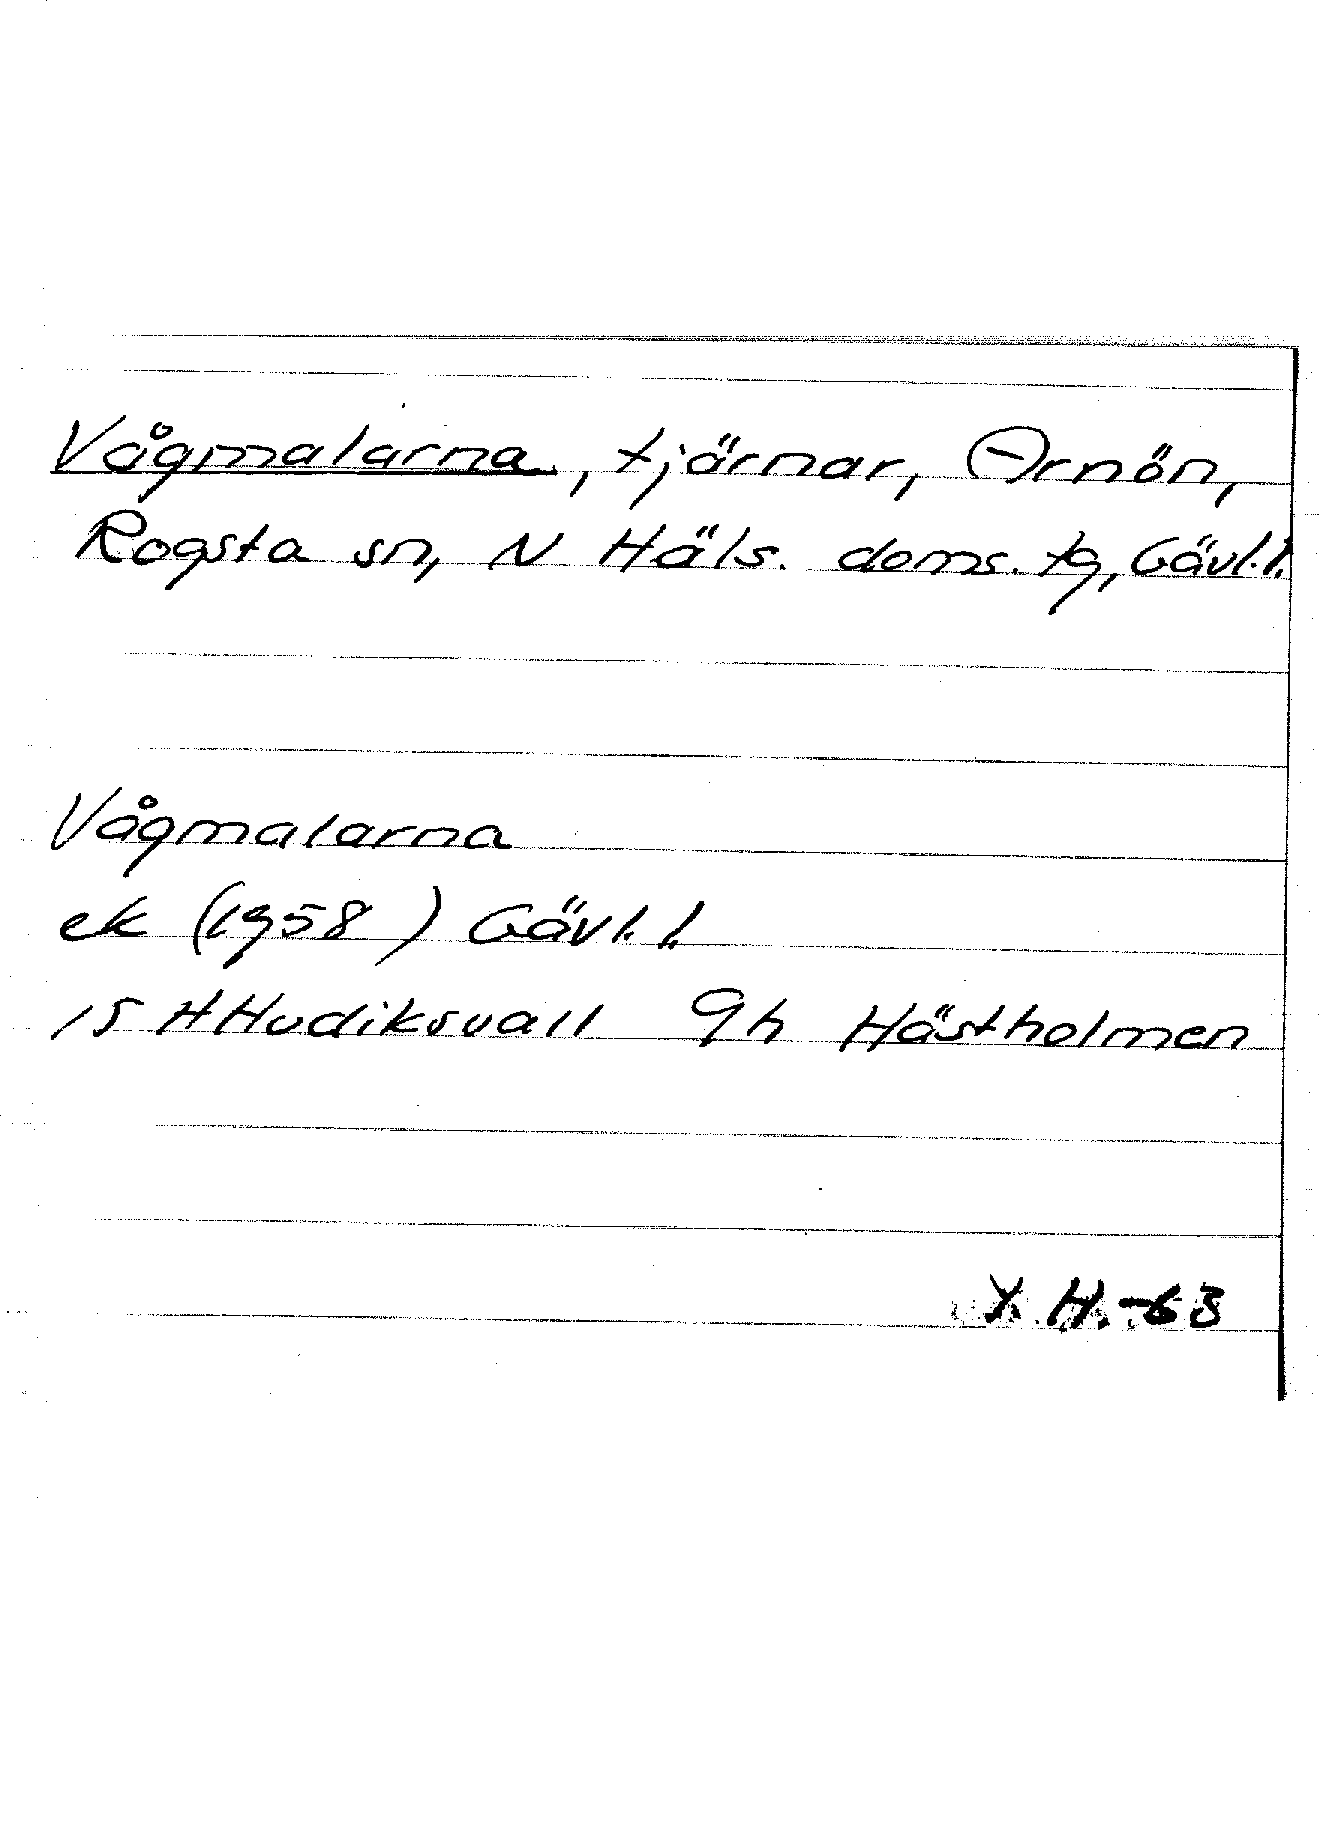 Vågmalarna, tjärnar, Ornön,
Rogsta sn, N Häls. doms. tg, Gävl.l.
Vågmalarna
ek (1958) Gävl.l.
15 H Hudiksvall 9h Hästholmen
Y. H. -63